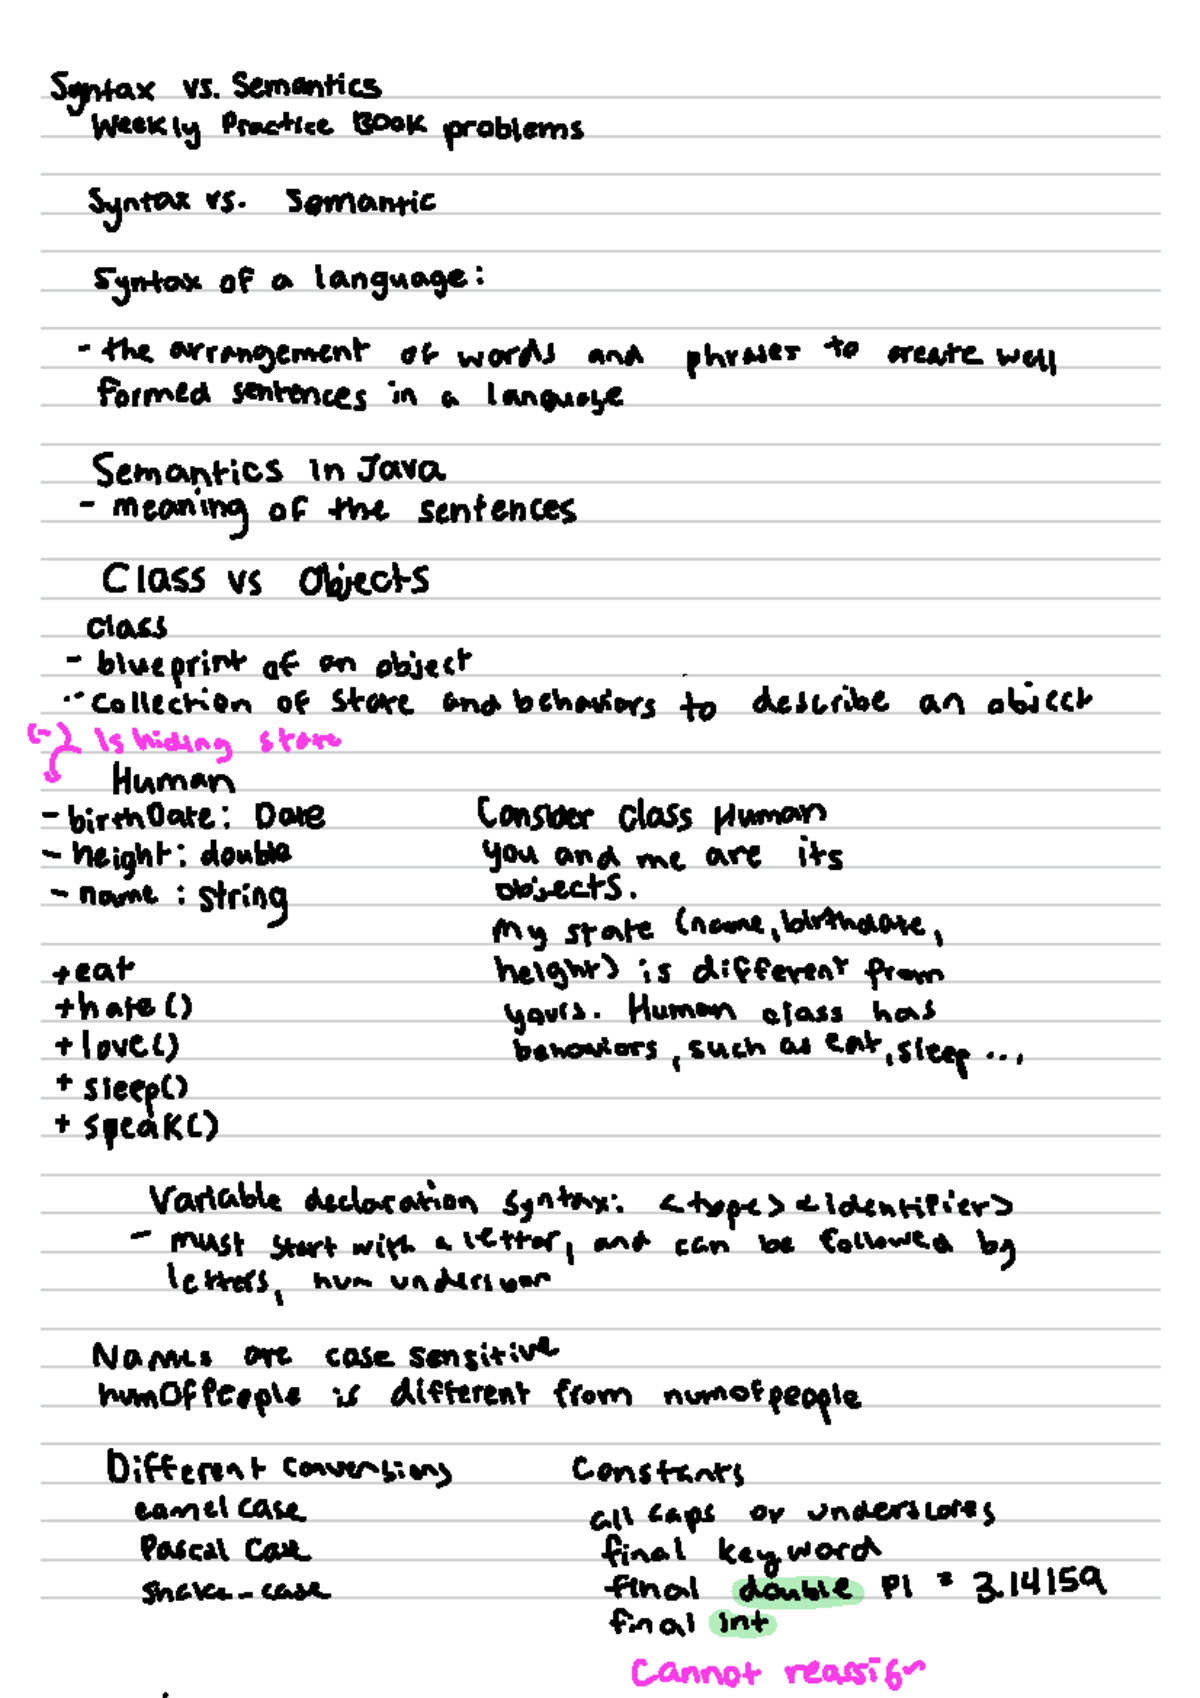 Syntax vs. Semantics
Weekly Practice Book problems
Syntax vs. Semantic
Syntax of a language:
- the arrangement of words and phrases to create well
formed sentences in a language
Semantics in Java
- meaning of the sentences
Class vs Objects
class
- blueprint of an object
- collection of state and behaviors to describe an object
(-) Is hiding state
Human
- birthDate: Date
- height: double
- name : string
+eat
+hate()
+love()
+ sleep()
+ speak()
Consider class Human
you and me are its
objects.
My state (name, birthdate,
height) is different from
yours. Human class has
behaviors, such as eat, sleep ...,
Variable declaration syntax: <type> <identifier>
- must start with a letter, and can be followed by
letters, num
Names are case sensitive
numOfPeople is different from numofpeople
Different conversions
camel case
Pascal Case
snake_case
Constants
all caps or underscores
final keyword
final double PI = 3.14159
final int
Cannot reassign